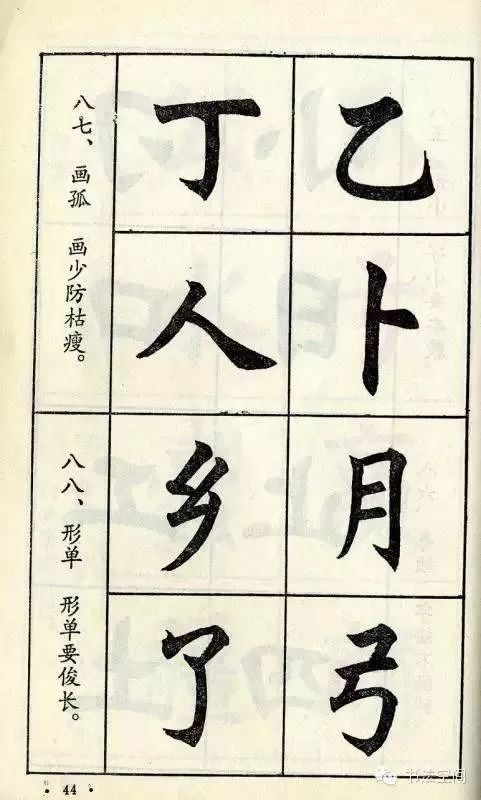 乙卜
丁人
八七、画孤 画少防枯瘦。
月弓
乡了
八八、形单 形单要俊长。
44
书法空间